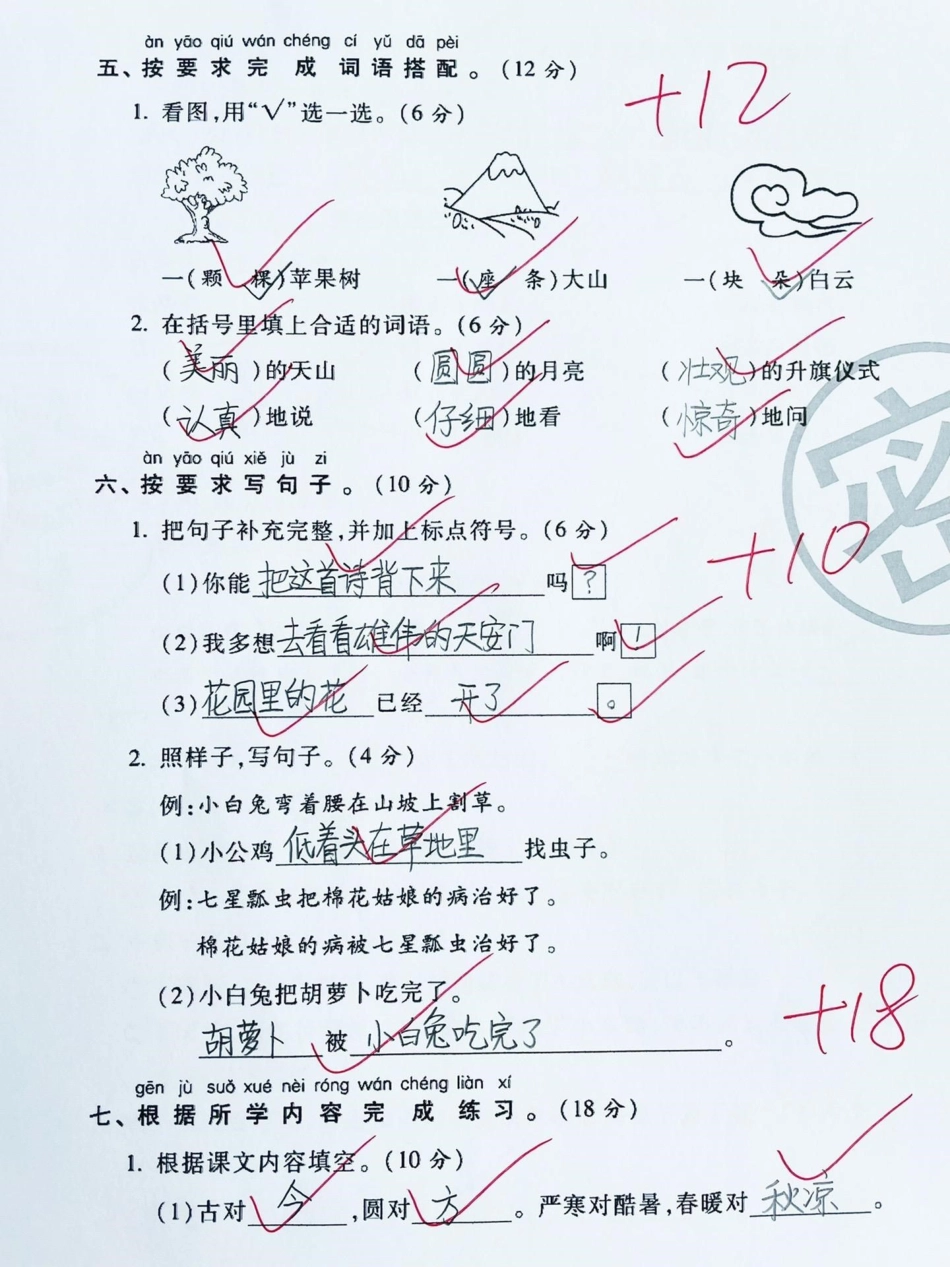 àn yāo qiú wán chéng cí yǔ dā pèi
五、按要求完成词语搭配。(12分)
+12
1. 看图,用“√”选一选。(6分)
一(颗 棵√)苹果树 一(座√ 条)大山 一(块 朵√)白云
2. 在括号里填上合适的词语。(6分)
(美丽)的天山 (圆圆)的月亮 (壮观)的升旗仪式
(认真)地说 (仔细)地看 (惊奇)地问
密
àn yāo qiú xiě jù zi
六、按要求写句子。(10分)
1. 把句子补充完整,并加上标点符号。(6分)
+10
(1)你能把这首诗背下来吗?
(2)我多想去看看雄伟的天安门啊!
(3)花园里的花已经开了。
2. 照样子,写句子。(4分)
例:小白兔弯着腰在山坡上割草。
(1)小公鸡低着头在草地里找虫子。
例:七星瓢虫把棉花姑娘的病治好了。
棉花姑娘的病被七星瓢虫治好了。
(2)小白兔把胡萝卜吃完了。
+18
胡萝卜被小白兔吃完了。
gēn jù suǒ xué nèi róng wán chéng liàn xí
七、根据所学内容完成练习。(18分)
1. 根据课文内容填空。(10分)
(1)古对今,圆对方。严寒对酷暑,春暖对秋凉。